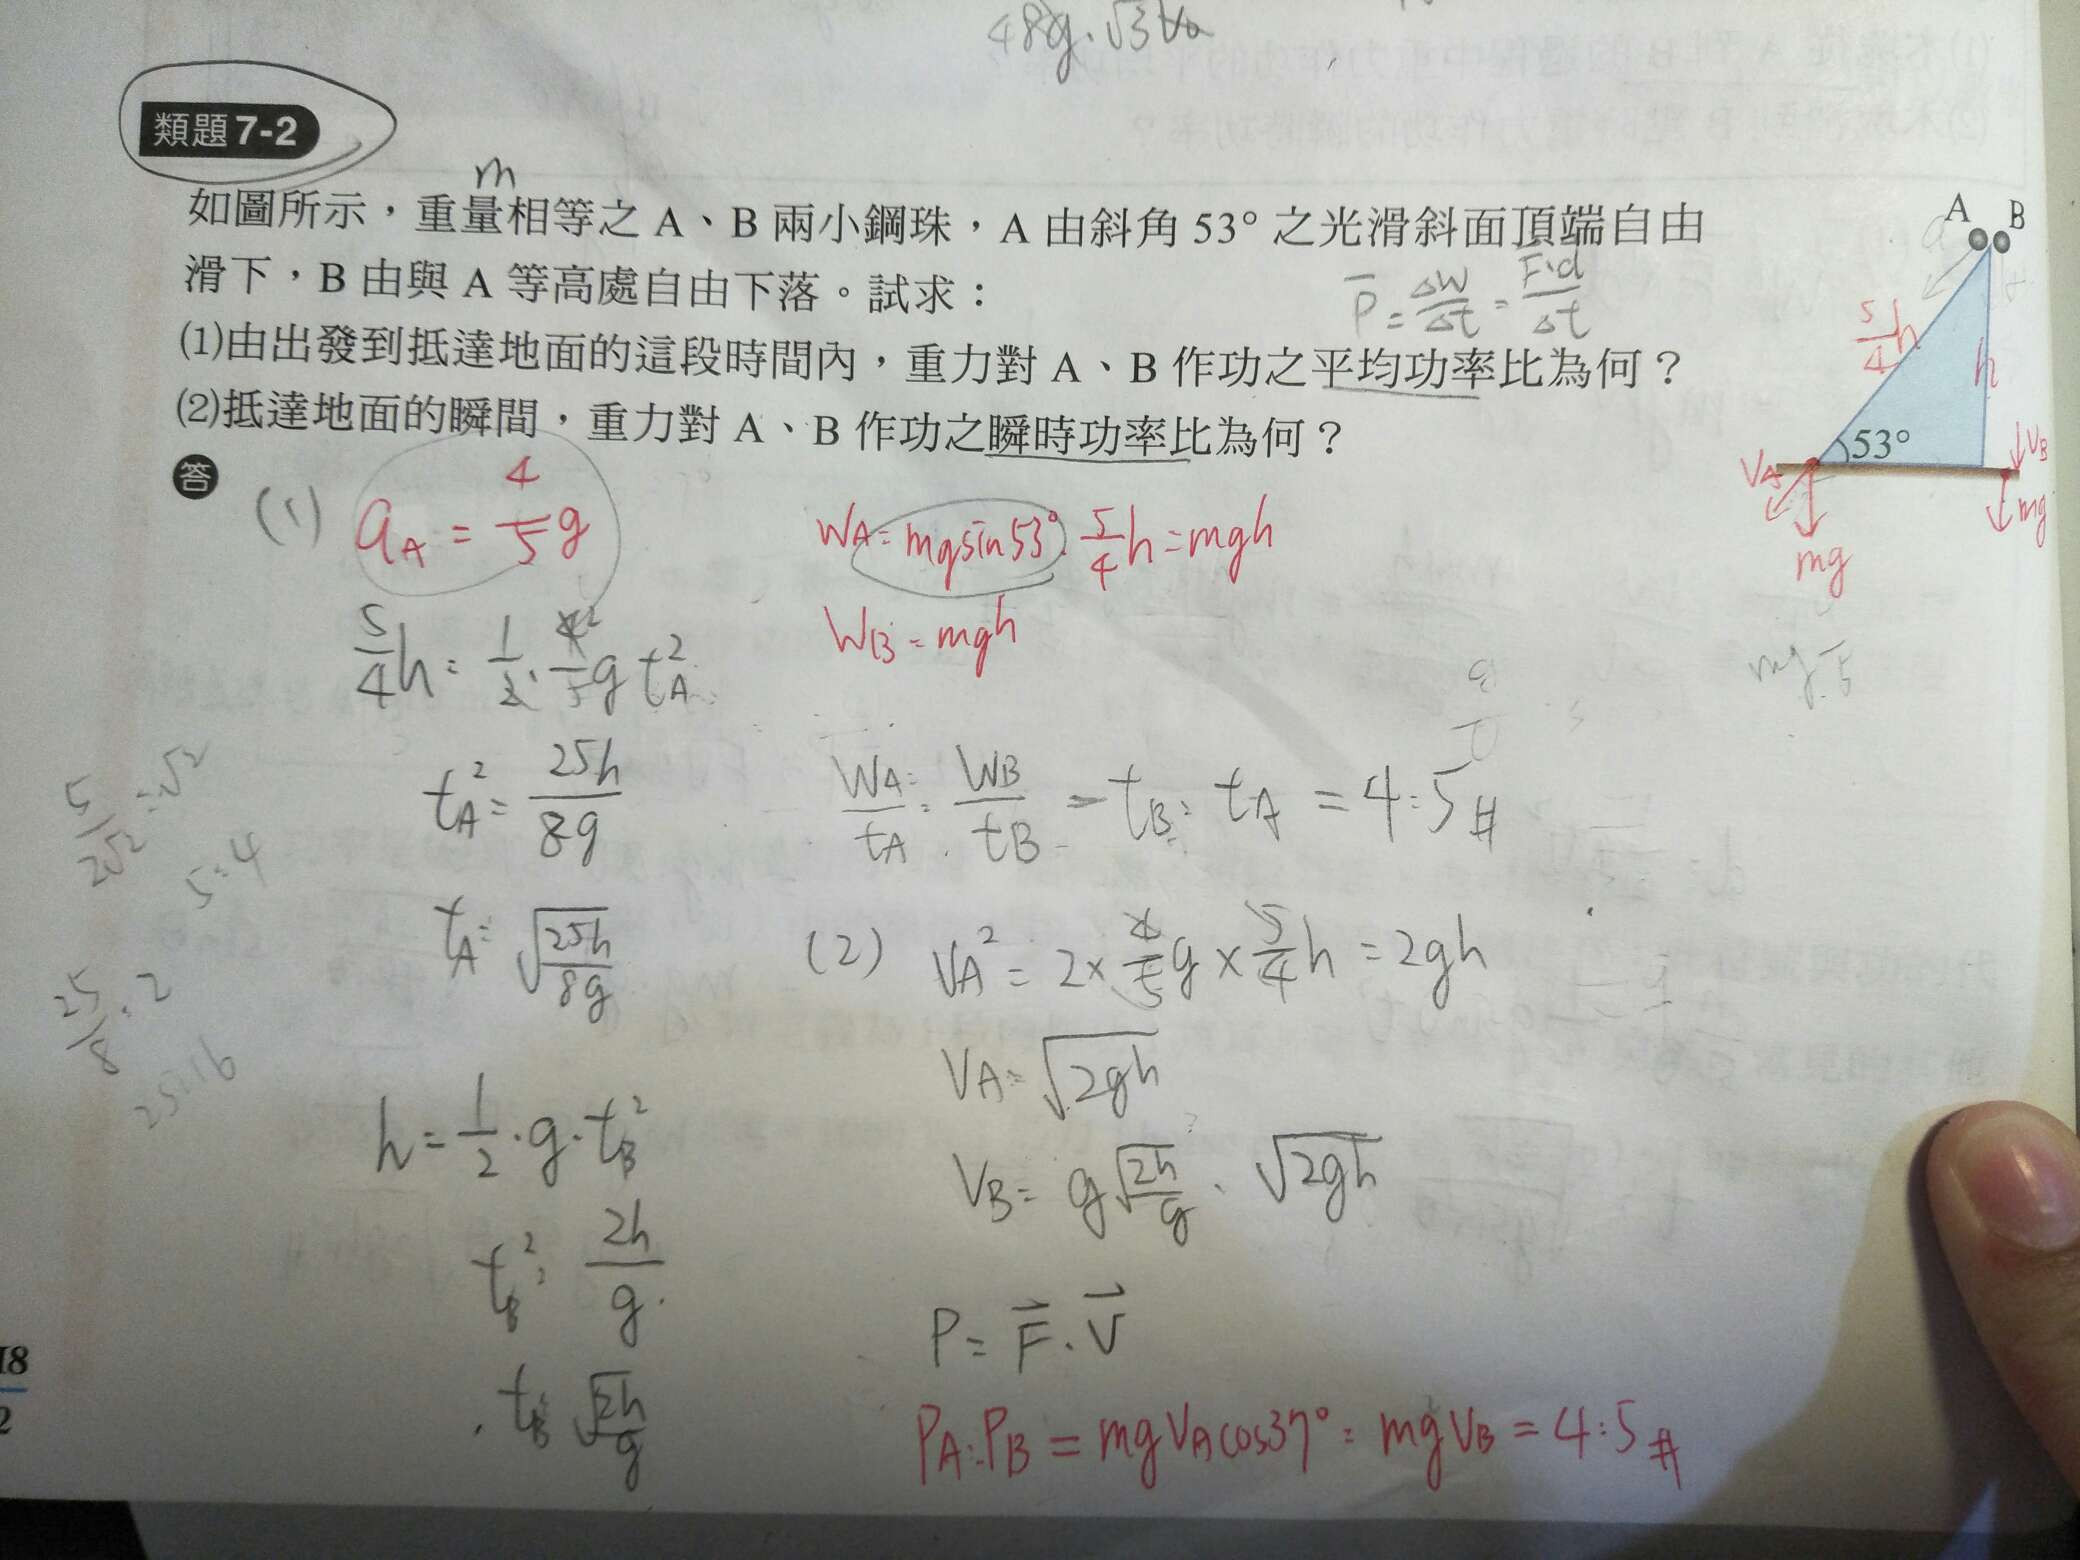 48g·√3
類題7-2
m
如圖所示，重量相等之 A、B 兩小鋼珠，A 由斜角 53° 之光滑斜面頂端自由
滑下，B 由與 A 等高處自由下落。試求：
P̄ = ΔW/Δt = F·d/Δt
(1)由出發到抵達地面的這段時間內，重力對 A、B 作功之平均功率比為何？
(2)抵達地面的瞬間，重力對 A、B 作功之瞬時功率比為何？
A B
a
5/4 h
h
53°
VA
VB
mg
mg
答
(1) aA = 4/5 g
5/4 h = 1/2 · 4/5 g tA²
tA² = 25h/8g
tA = √(25h/8g)
h = 1/2 · g · tB²
tB² = 2h/g
tB = √(2h/g)
WA = mg sin53° · 5/4 h = mgh
WB = mgh
WA/tA : WB/tB = tB : tA = 4:5 #
(2) VA² = 2 × 4/5 g × 5/4 h = 2gh
VA = √2gh
VB = g√(2h/g) · √2gh
P = F⃗ · V⃗
PA:PB = mgVA cos37° : mgVB = 4:5 #
5/2√2 : √2
5:4
25/8 : 2
25:16
18
2